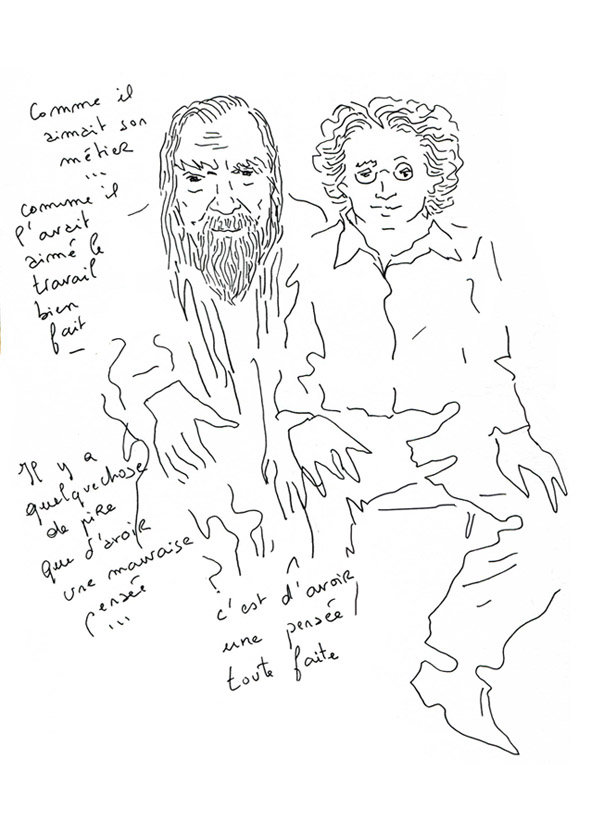 Comme il
aimait son
métier
...
comme il
l'avait
aimé le
travail
bien
fait
Il y a
quelquechose
de pire
que d'avoir
une mauvaise
pensée
...
c'est d'avoir
une pensée
toute faite